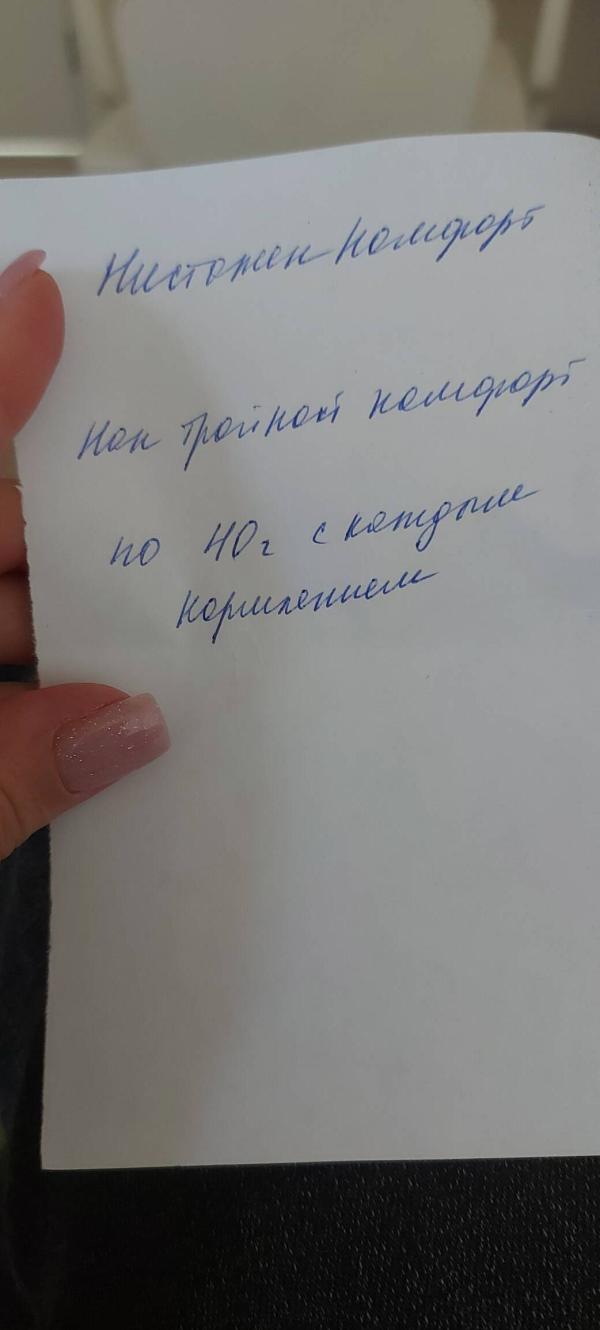 Нистожен Комфорт
Нан тройной комфорт
по 40г с каждым
кормлением